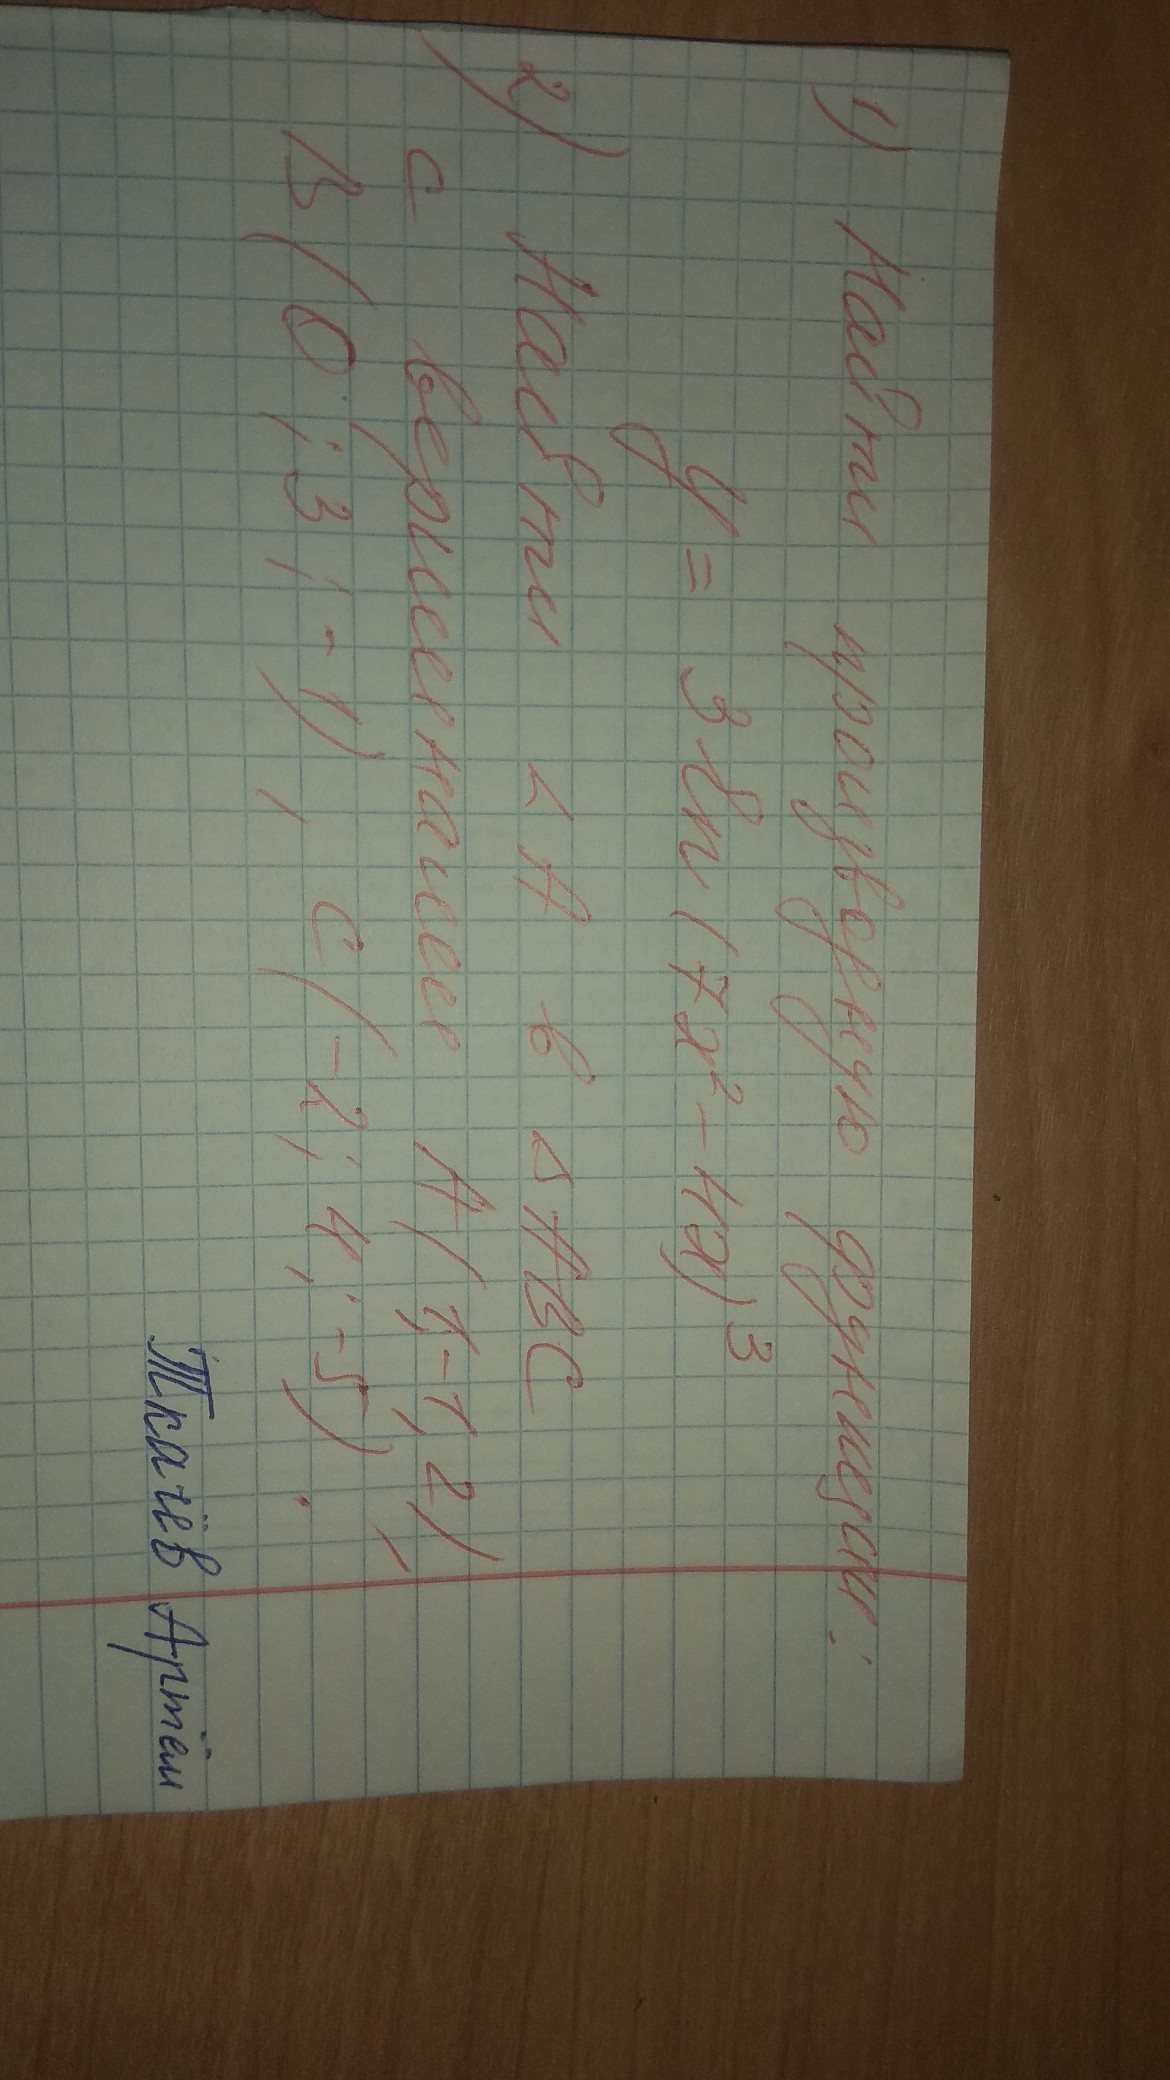 1) Найти производную функции:
y = 3 ln (7x² - 4x)³
2) Найти ∠A в △ABC
с вершинами A(1;-1;2),
B(0;3;-1), C(-2;4;-5).
Ткачёв Артём